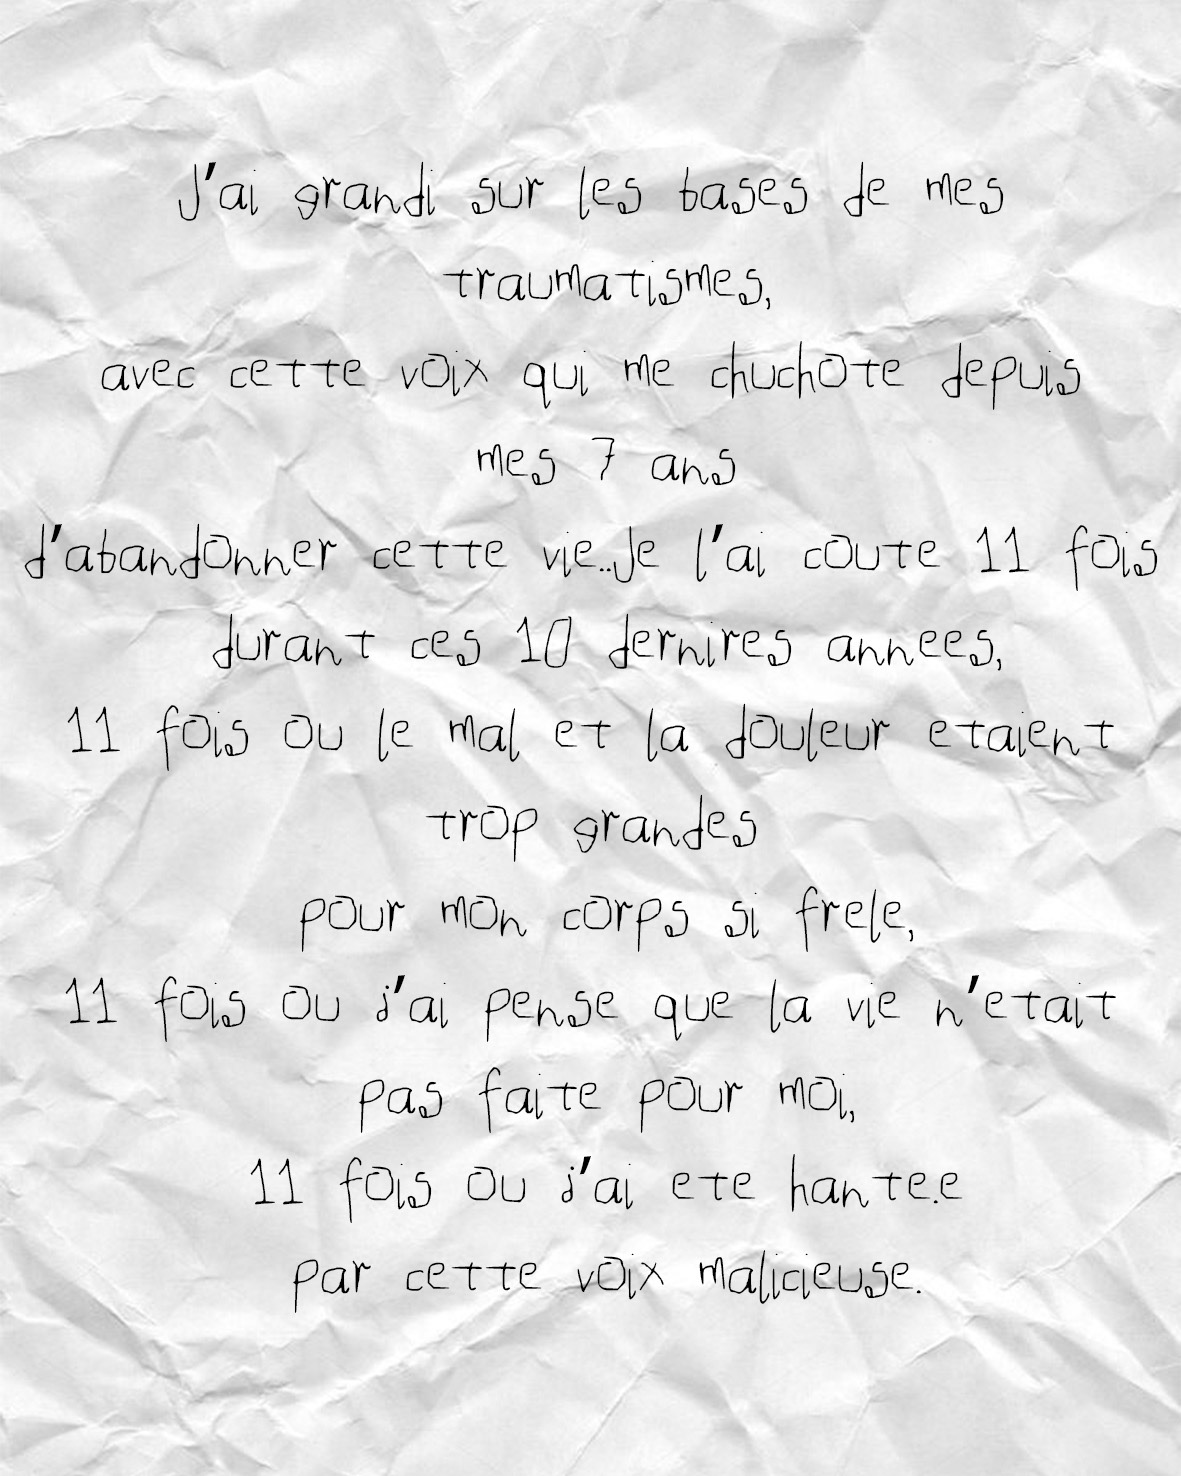 J'ai grandi sur les bases de mes
traumatismes,
avec cette voix qui me chuchote depuis
mes 7 ans
d'abandonner cette vie..Je l'ai coute 11 fois
durant ces 10 dernires annees,
11 fois ou le mal et la douleur etaient
trop grandes
pour mon corps si frele,
11 fois ou j'ai pense que la vie n'etait
pas faite pour moi,
11 fois ou j'ai ete hante.e
par cette voix malicieuse.